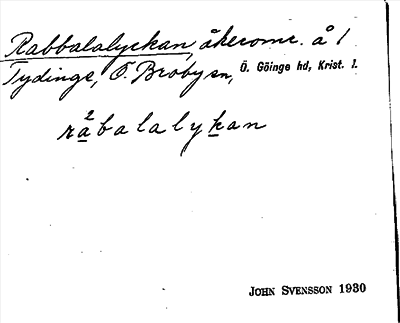 Rabbalalyckan, åkeromr. å 1
Tydinge, Ö. Broby sn, Ö. Göinge hd, Krist. l.
2
rabalalykan
JOHN SVENSSON 1930